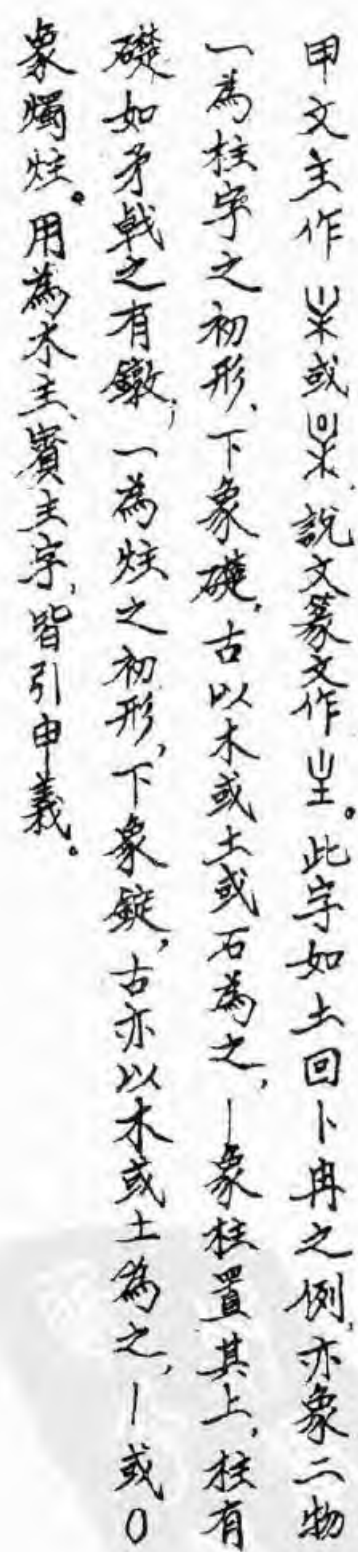 甲文主作或，說文篆文作。此字如土回卜冉之例，亦象二物
一為柱字之初形，下象礎，古以木或土或石為之，丨象柱置其上，柱有
礎如矛戟之有鐓；一為炷之初形，下象錠，古亦以木或土為之，丨或0
象燭炷。用為木主、賓主字，皆引申義。